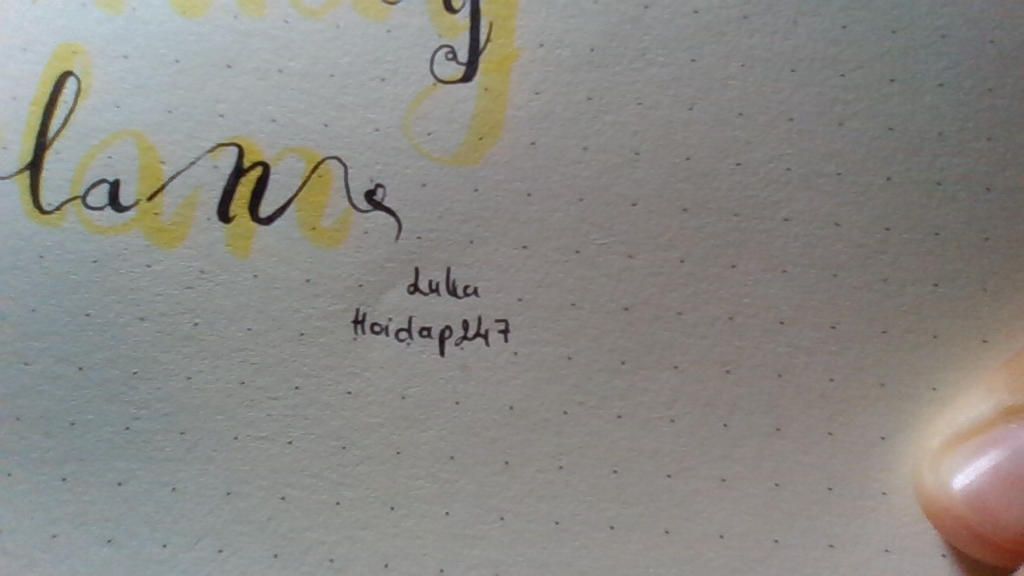 lan
Luka
Hoidap247